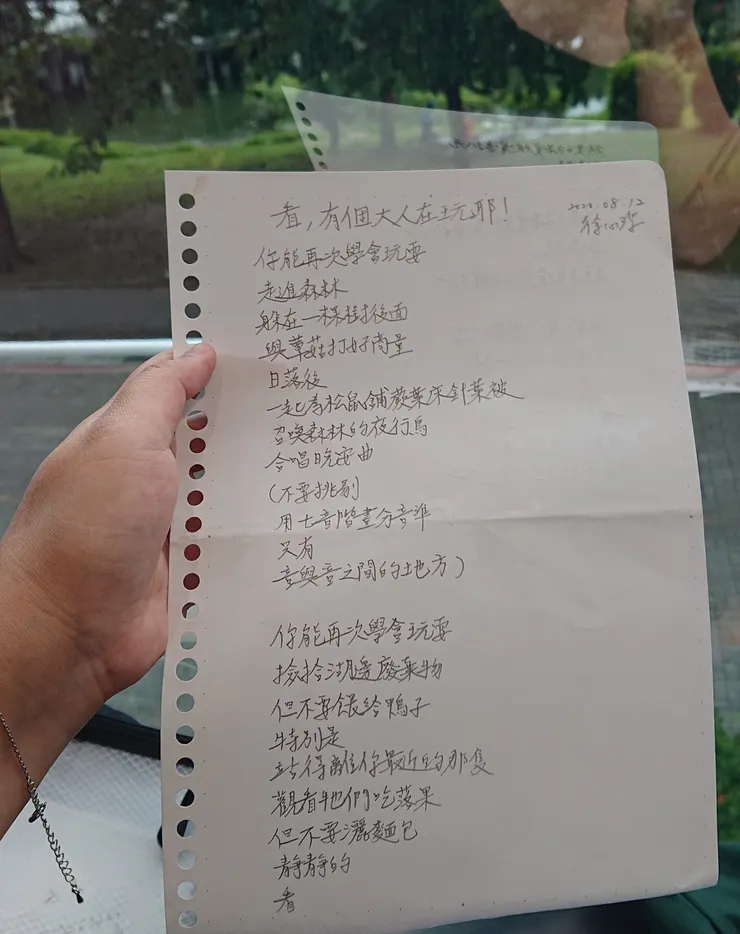 看，有個大人在玩耶！
2020.08.12
徐
你能再次學會玩耍
走進森林
躲在一棵樹後面
與蘑菇打好商量
日落後
一起為松鼠鋪蕨葉床針葉被
召喚森林的夜行鳥
合唱晚安曲
（不要挑剔
用七音階畫分音準
又有
音與音之間的地方）
你能再次學會玩耍
撿拾湖邊廢棄物
但不要餵給鴨子
特別是
站得離你最近的那隻
觀看牠們吃落果
但不要灑麵包
靜靜的
看